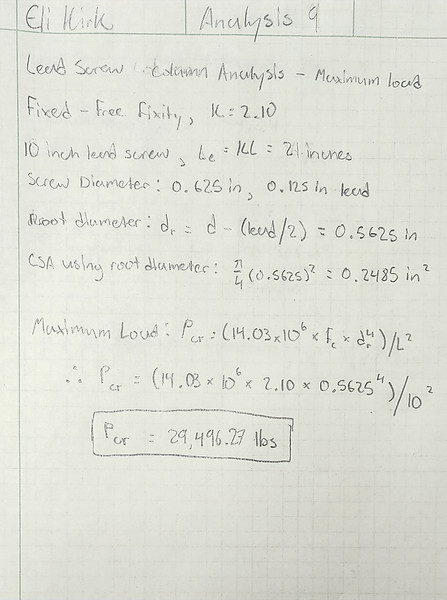 Eli Kirk Analysis 9
Lead Screw Column Analysis - Maximum load
Fixed - Free fixity, K = 2.10
10 inch lead screw, Le = KL = 21 inches
Screw Diameter: 0.625 in, 0.125 in lead
Root diameter: dr = d - (lead/2) = 0.5625 in
CSA using root diameter: π/4 (0.5625)² = 0.2485 in²
Maximum Load: Pcr = (14.03×10⁶ × fc × dr⁴)/L²
∴ Pcr = (14.03 × 10⁶ × 2.10 × 0.5625⁴)/10²
Pcr = 29,496.27 lbs